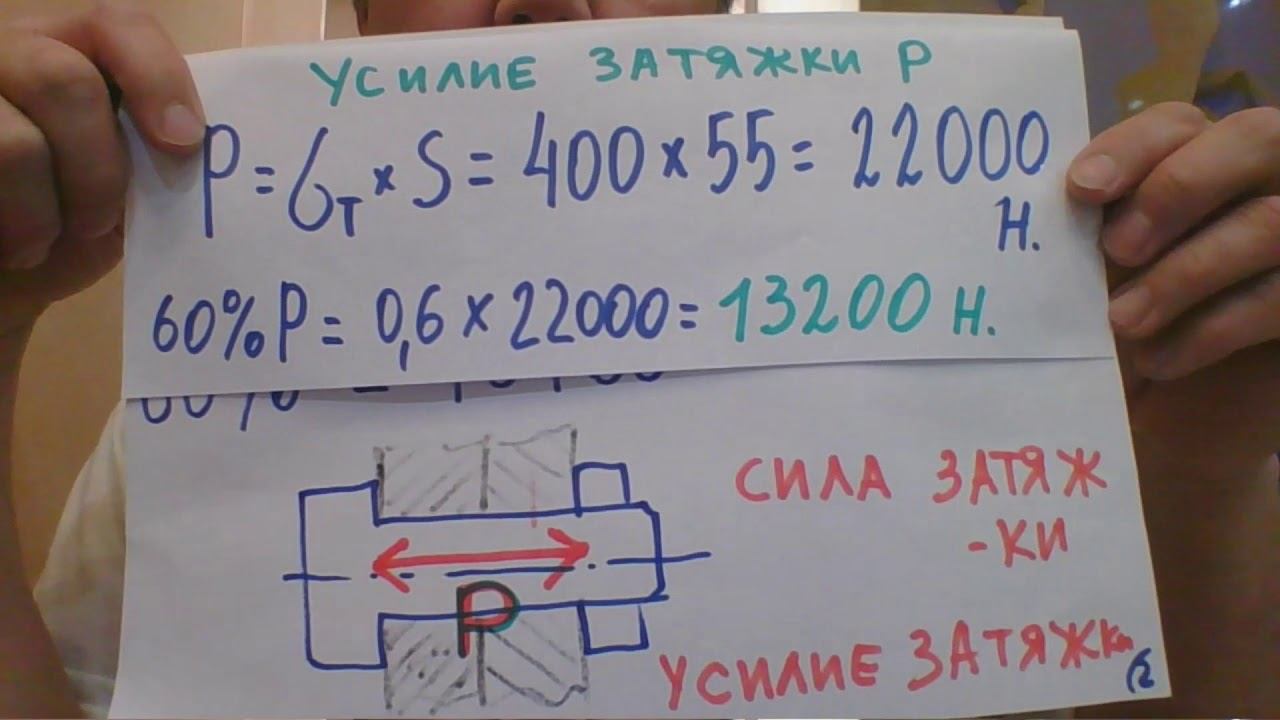 УСИЛИЕ ЗАТЯЖКИ Р
P = σт × S = 400 × 55 = 22000
Н.
60% P = 0,6 × 22000 = 13200 Н.
СИЛА ЗАТЯЖ
-КИ
Р
УСИЛИЕ ЗАТЯЖКИ